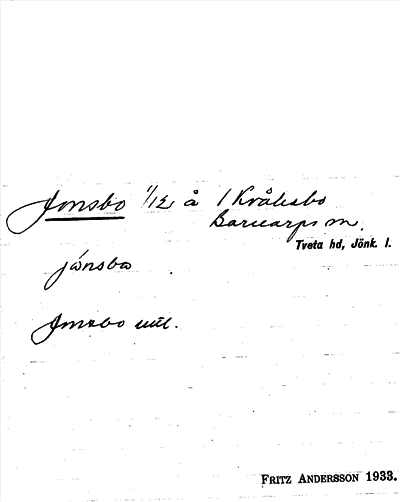 Jonsbo 1/12 å 1 Kråkebo
Barnarps sn.
Tveta hd, Jönk. l.
jónsbo
Jonsbo uttl.
FRITZ ANDERSSON 1933.